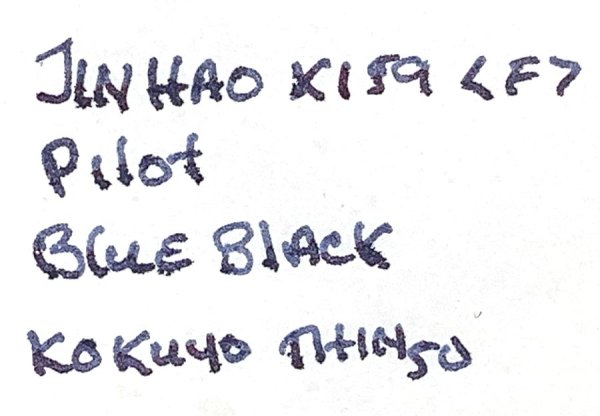 JINHAO X159 <F>
Pilot
BLUE BLACK
KOKUYO THIN